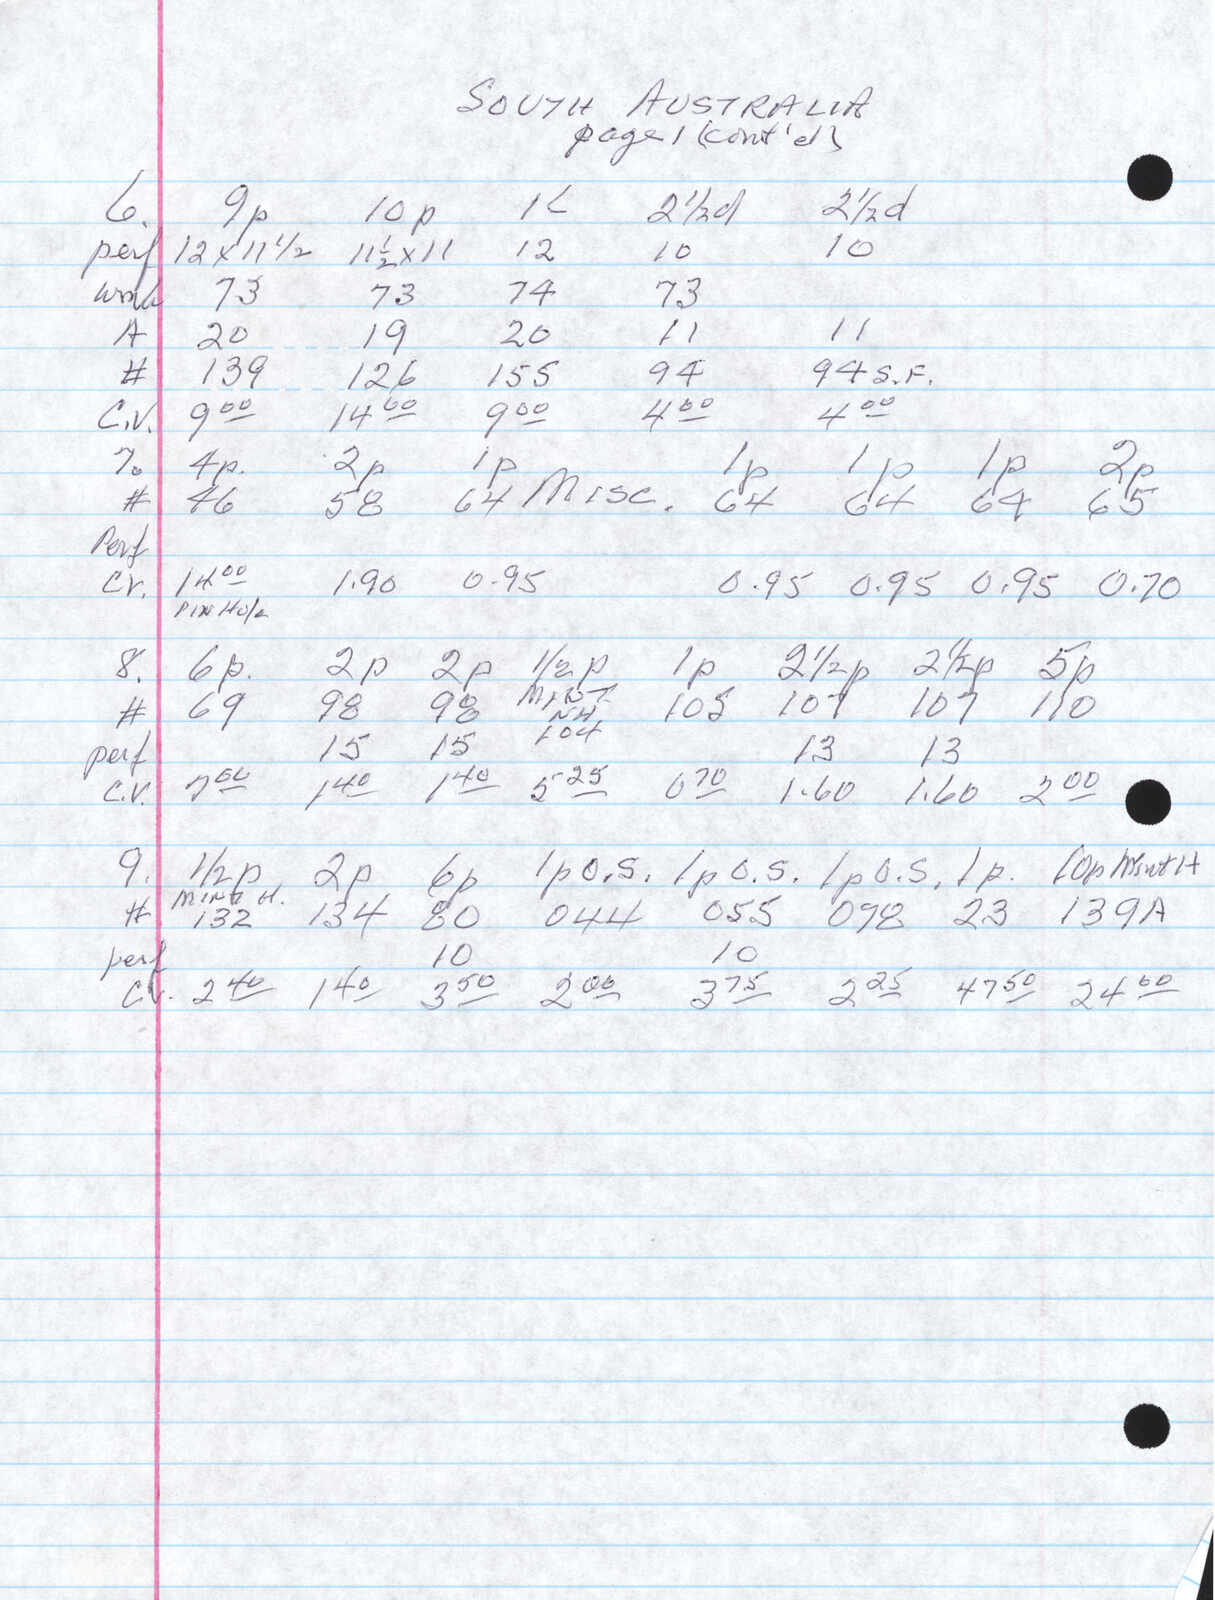 SOUTH AUSTRALIA
page 1 (cont'd)
6. 9p 10p 1L 2½d 2½d
perf 12 x 11½ 11½ x 11 12 10 10
wmk 73 73 74 73
A 20 19 20 11 11
# 139 126 155 94 94 S.F.
C.V. 9 00 14 00 9 00 4 00 4 00
7. 4p. 2p 1p Misc. 1p 1p 1p 2p
# 46 58 64 64 64 64 65
Perf
CV. 14 00 1.90 0.95 0.95 0.95 0.95 0.70
PIN Hole
8. 6p. 2p 2p ½p 1p 2½p 2½p 5p
MINT
NH
# 69 98 98 104 105 107 107 110
perf 15 15 13 13
C.V. 7 00 1 40 1 40 5 25 0 70 1.60 1.60 2 00
9. ½p 2p 6p 1p O.S. 1p O.S. 1p O.S. 1p. 10p Mint H
Mint H.
# 132 134 80 044 055 078 23 139A
perf 10 10
C.V. 2 40 1 40 3 50 2 00 3 75 2 25 47 50 24 00